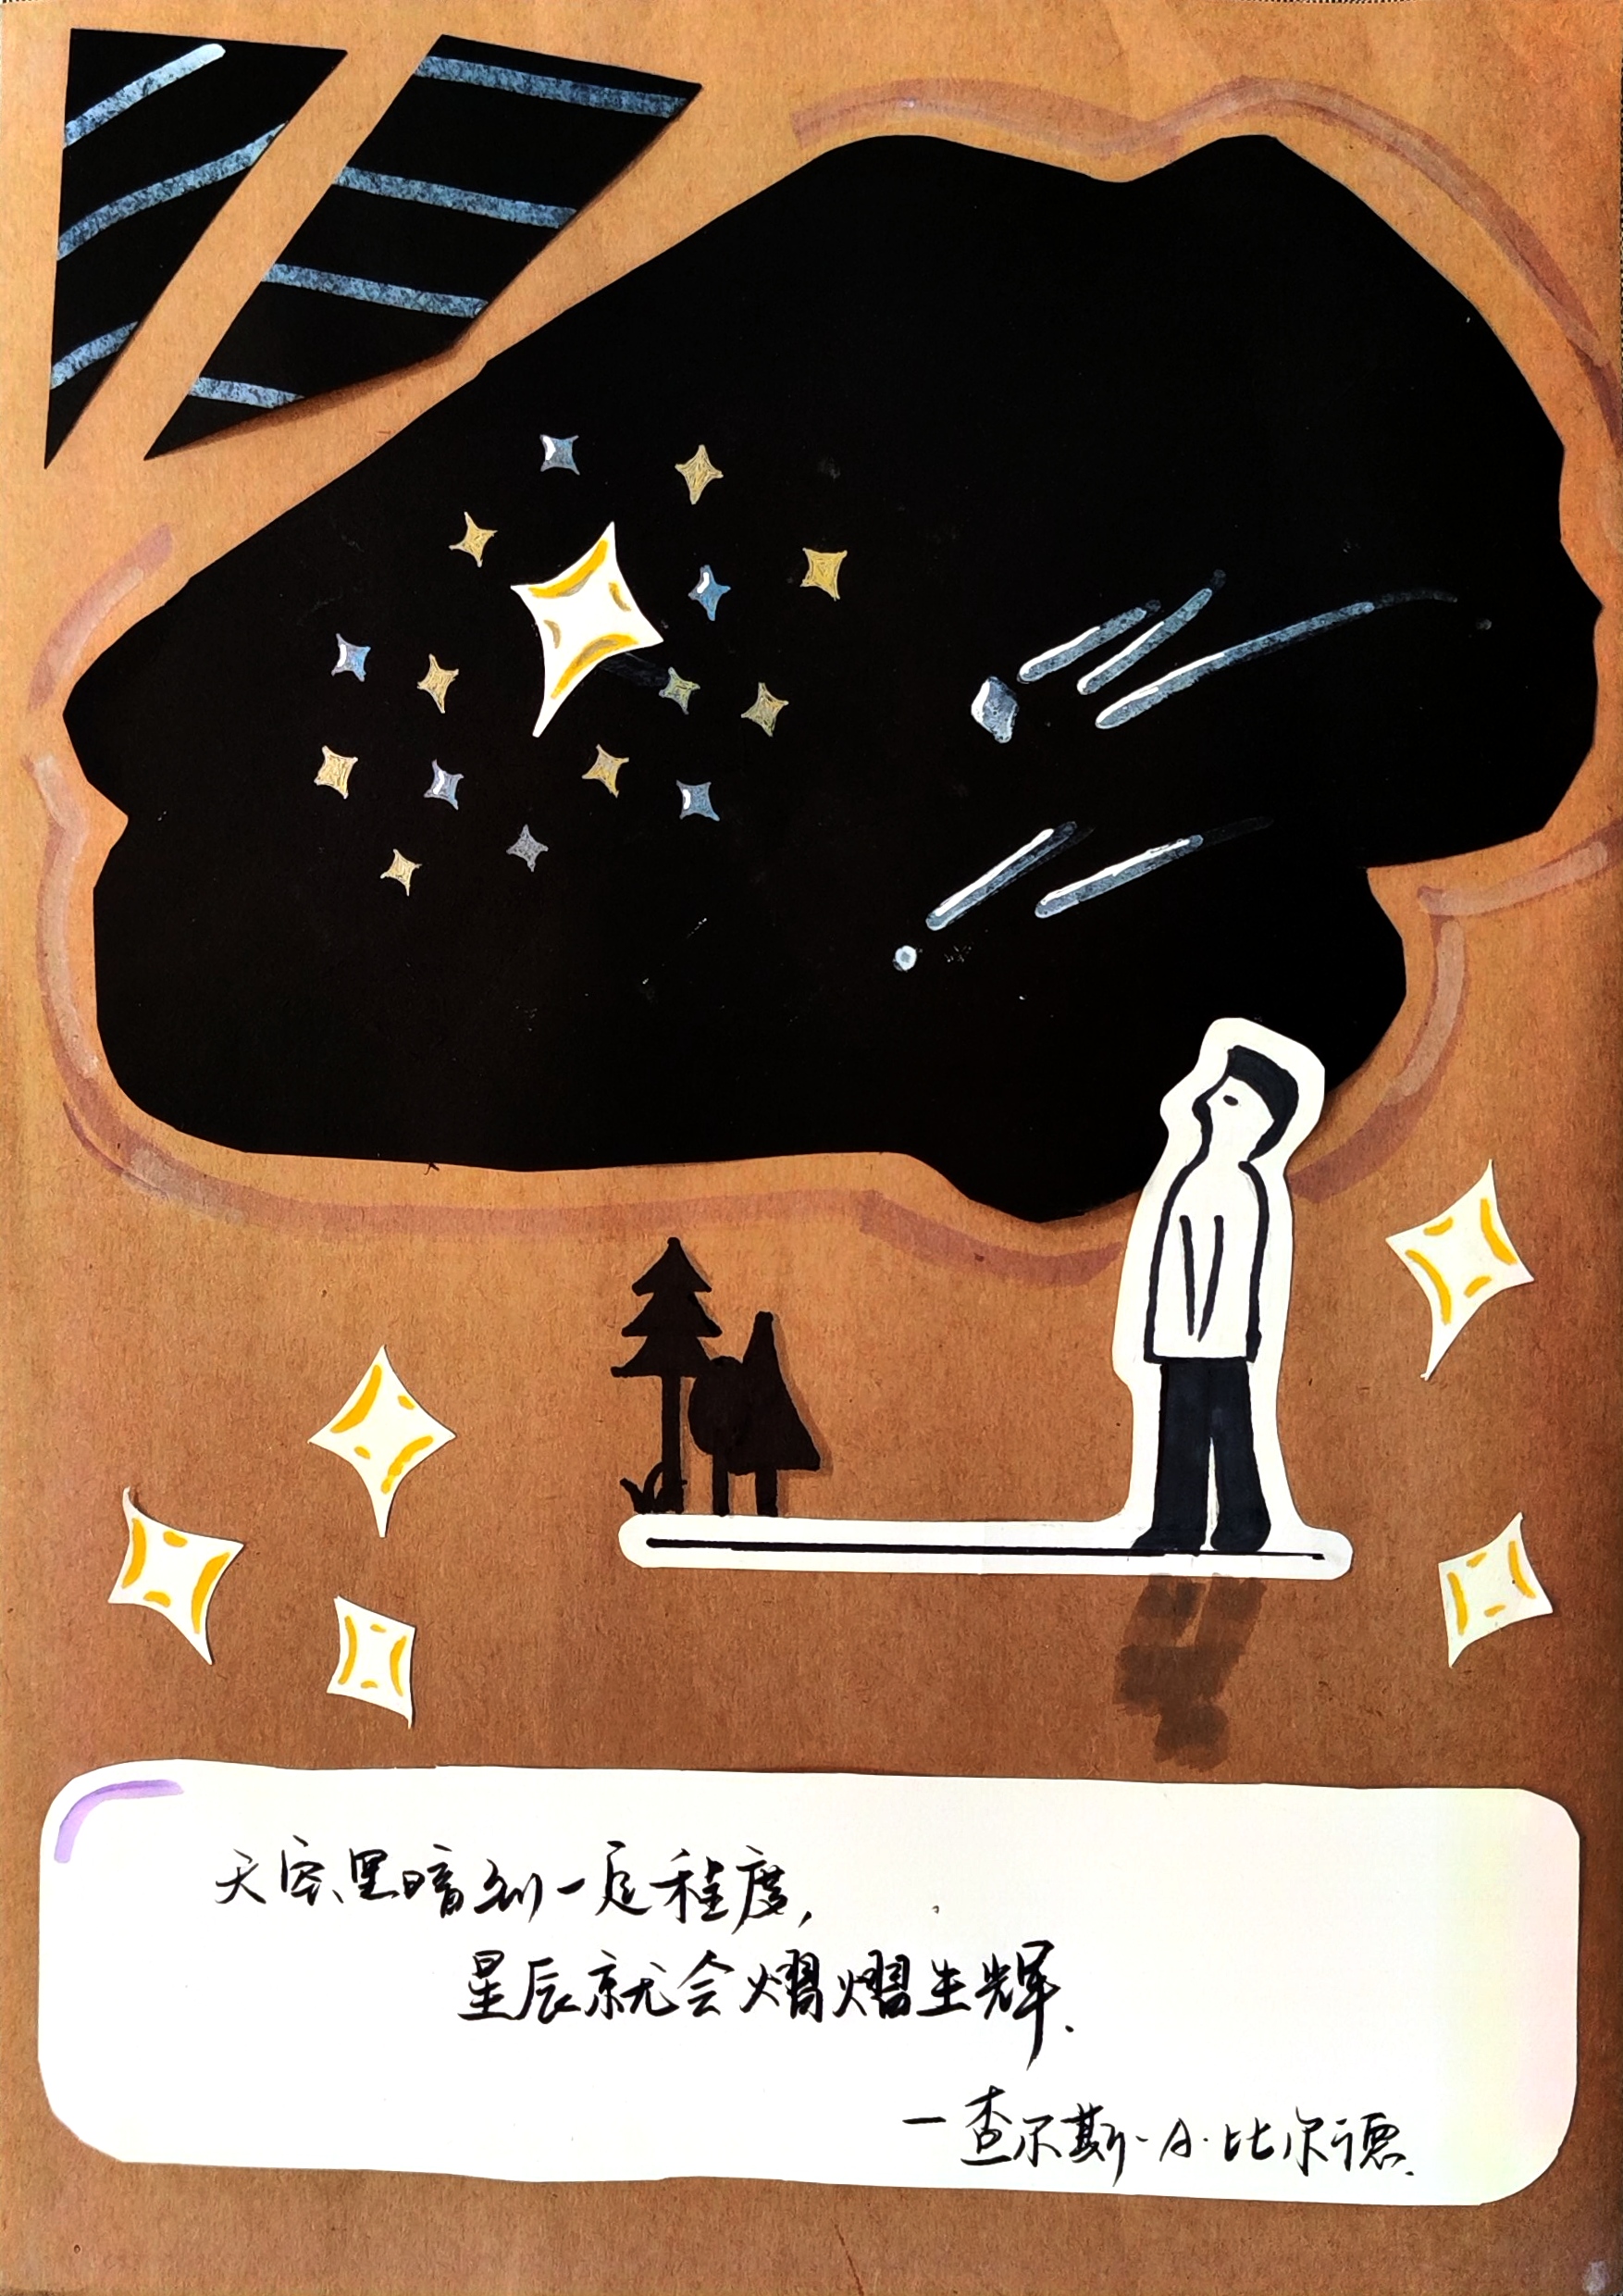 天空黑暗到一定程度,
星辰就会熠熠生辉.
—查尔斯·A·比尔德.